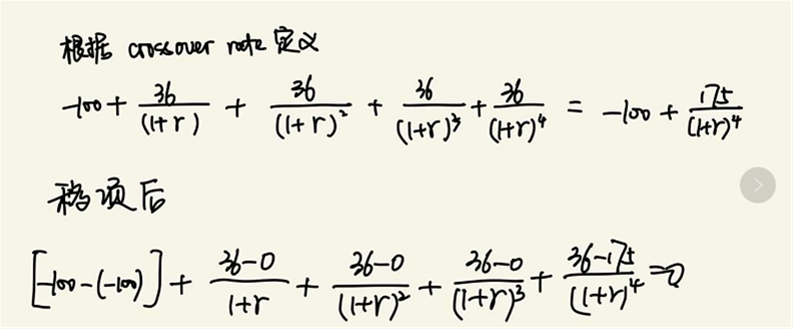 根据 crossover rate 定义
-100 + \frac{36}{(1+r)} + \frac{36}{(1+r)^2} + \frac{36}{(1+r)^3} + \frac{36}{(1+r)^4} = -100 + \frac{175}{(1+r)^4}
移项后
[-100-(-100)] + \frac{36-0}{1+r} + \frac{36-0}{(1+r)^2} + \frac{36-0}{(1+r)^3} + \frac{36-175}{(1+r)^4} = 0